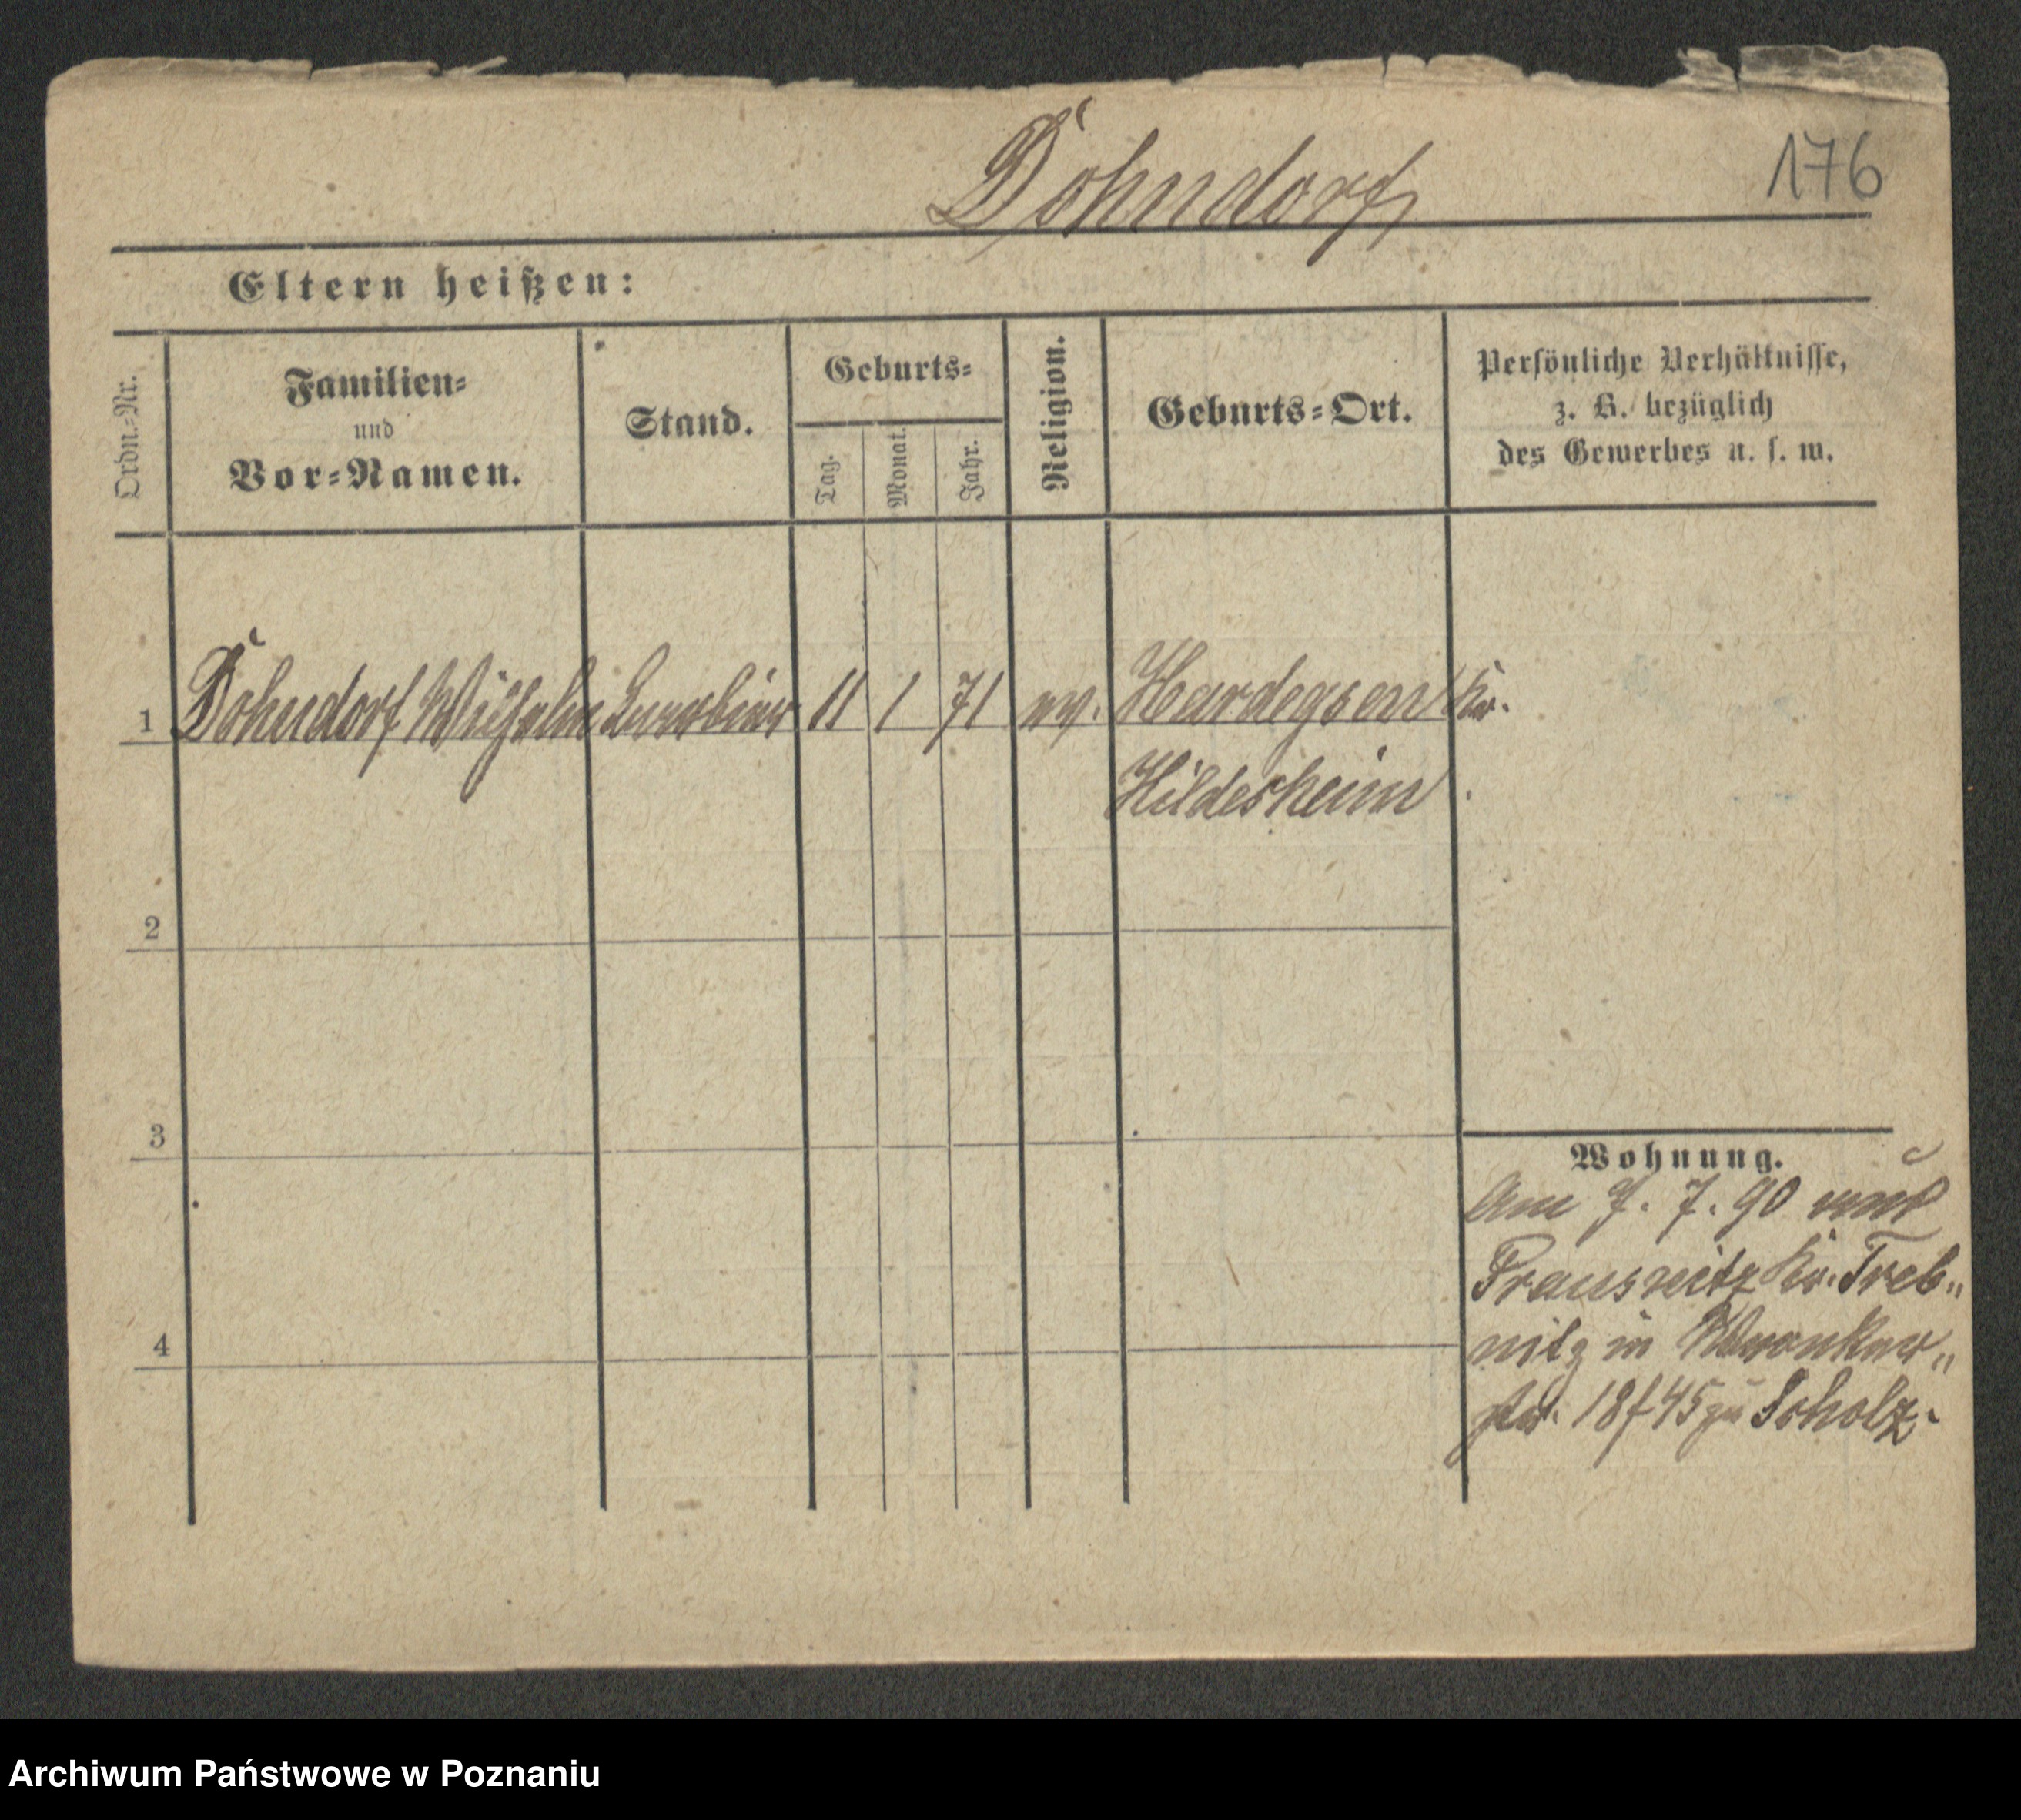 176
Dohndorf
Eltern heißen:
Ordn.-Nr.
Familien-
und
Vor-Namen.
Stand.
Geburts-
Tag.
Monat.
Jahr.
Religion.
Geburts-Ort.
Persönliche Verhältnisse,
z. B. bezüglich
des Gewerbes u. s. w.
1 Dohndorf Wilhelm 11 1 71 ev. Hardegsen Kr.
Hildesheim
2
3
4
Wohnung.
Am 7. 7. 90 von
Prausnitz Kr. Treb„
nitz in Wronker„
str. 18 f 45 zu Scholz.
Archiwum Państwowe w Poznaniu